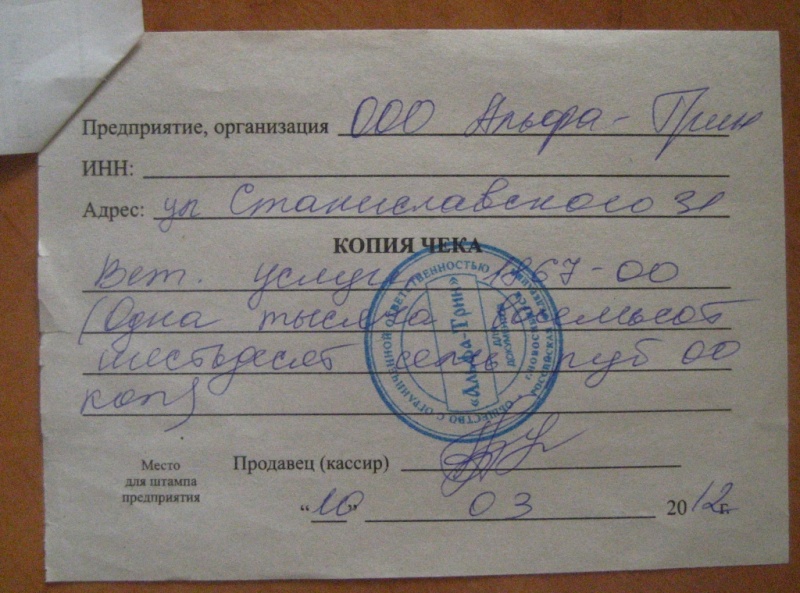 Предприятие, организация ООО Альфа-Грин
ИНН:
Адрес: ул Станиславского 31
КОПИЯ ЧЕКА
Вет. услуги 1867-00
(Одна тысяча восемьсот
шестьдесят семь руб 00
коп)
ОБЩЕСТВО С ОГРАНИЧЕННОЙ ОТВЕТСТВЕННОСТЬЮ
«Альфа-Грин»
ДЛЯ
ДОКУМЕНТОВ
РОССИЙСКАЯ
г.НОВОСИБИРСК
Место
для штампа
предприятия
Продавец (кассир)
"10" 03 2012г.